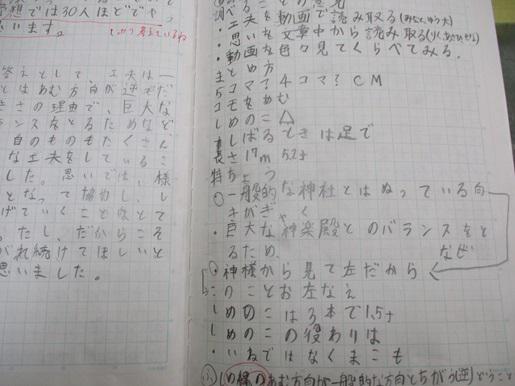 予想では30人ほどでや
います。
しっかり考えているね
答えとして、工夫は一
とはあむ方向が逆だ
きさの理由で、巨大な
ランスをとるためなど
白のものもたくさん
な工夫をしているこ
した。思いでは、様
となって協力し、し
げていくこと
たし、だからこそ
がれ続けてほしいと
思いました。
調べることの意見
・工夫を動画で読み取る
・思いを文章中から読み取る
・動画を色々見てくらべてみる。
まとめ方
5コマ?4コマ?CM
コモをあむ
しめのこ△
しばるときは足で
長さ17m 5.2t
特ちょう
①一般的な神社とはぬっている向
きがぎゃく
・巨大な神楽殿とのバランスをと
るため、
なぜ
・神様から見て左だから
このことお左なえ
しめのこは3本で1.5t
しめのこの役わりは
・いねではなくまこも
しめ縄のあむ方向が一般的な方向とちがう(逆)ということ